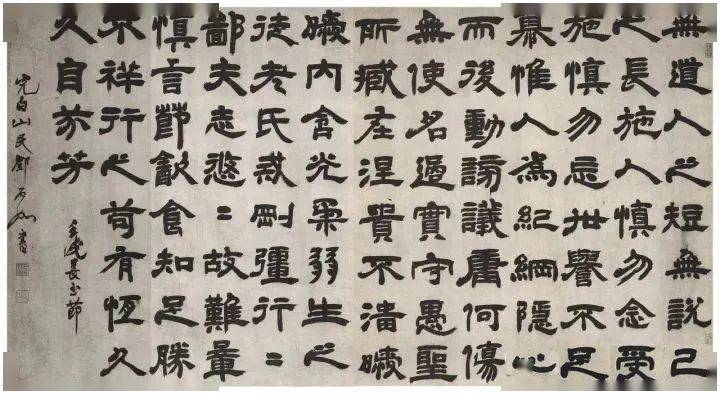 無道人之短無說己
之長施人慎勿念受
施慎勿忘世譽不足
慕惟人爲紀綱隱心
而後動謗議庸何傷
無使名過實守愚聖
所臧在涅貴不淄曖
曖內含光柔弱生之
徒老氏戒剛彊行〻
鄙夫志悠〻故難量
慎言節飲食知足勝
不祥行之苟有恆久
久自芬芳
壬戌長至節
完白山民鄧石如書